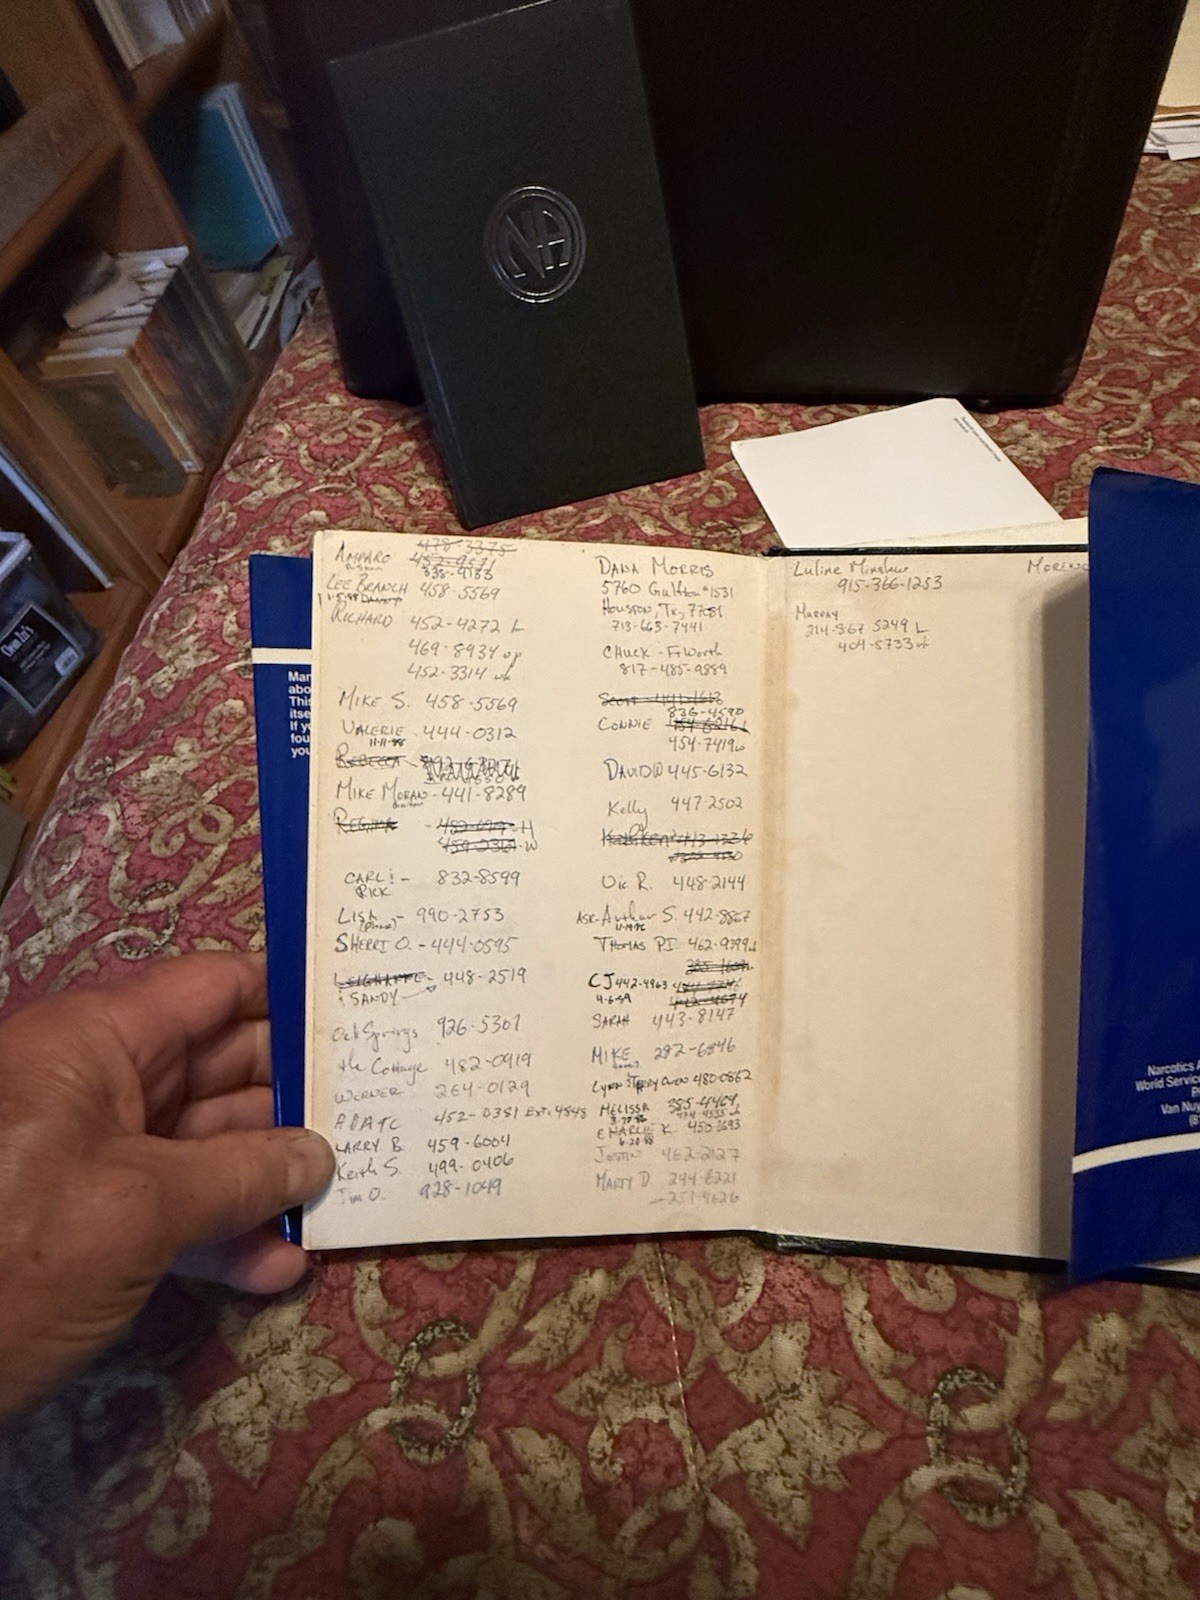 NA
AMPARO 478-3375
452-9571
338-9133
LEE BRANCH 458-5569
RICHARD 452-4272 L
469-8934 op
452-3314 wk
MIKE S. 458-5569
VALERIE 444-0312
11-11-88
REBECCA
MIKE MORAN - 441-8289
REGINA - H
W
CARL! - 832-8599
RICK
LISA - 990-2753
SHERRI O. - 444-0595
448-2519
SANDY
Oak Springs 926-5301
the Cottage 482-0919
WERNER 264-0129
ADATC 452-0381 Ext. 4848
LARRY B 459-6004
Keith S. 499-0406
Jim O. 928-1049
DANA MORRIS
5760 Gulfton #1531
Houston, Tx, 77081
713-663-7441
CHUCK - Ft Worth
817-485-9889
Scott 441-1613
836-4590
CONNIE
454-7419w
DAVID W 445-6132
Kelly 447-2502
Kathleen
Vic R. 448-2144
ASK-Arthur S. 442-8867
THOMAS P.I. 462-9399
CJ 442-4963
4-6-89
SARAH 443-8147
MIKE 282-6846
LYNN & TERRY OWEN 480-0862
MELISSA 385-4404
CHARLIE K. 450-1693
6-20-88
JESTIN 462-2127
MARTY D 244-6221
- 251-4626
Luline Minshew
915-366-1253
MURRAY
214-867 5249 L
404-5733 wk
MORENO
Man
abo
This
itse
If yo
fou
you
Narcotics A
World Servic
P.
Van Nuy
(8